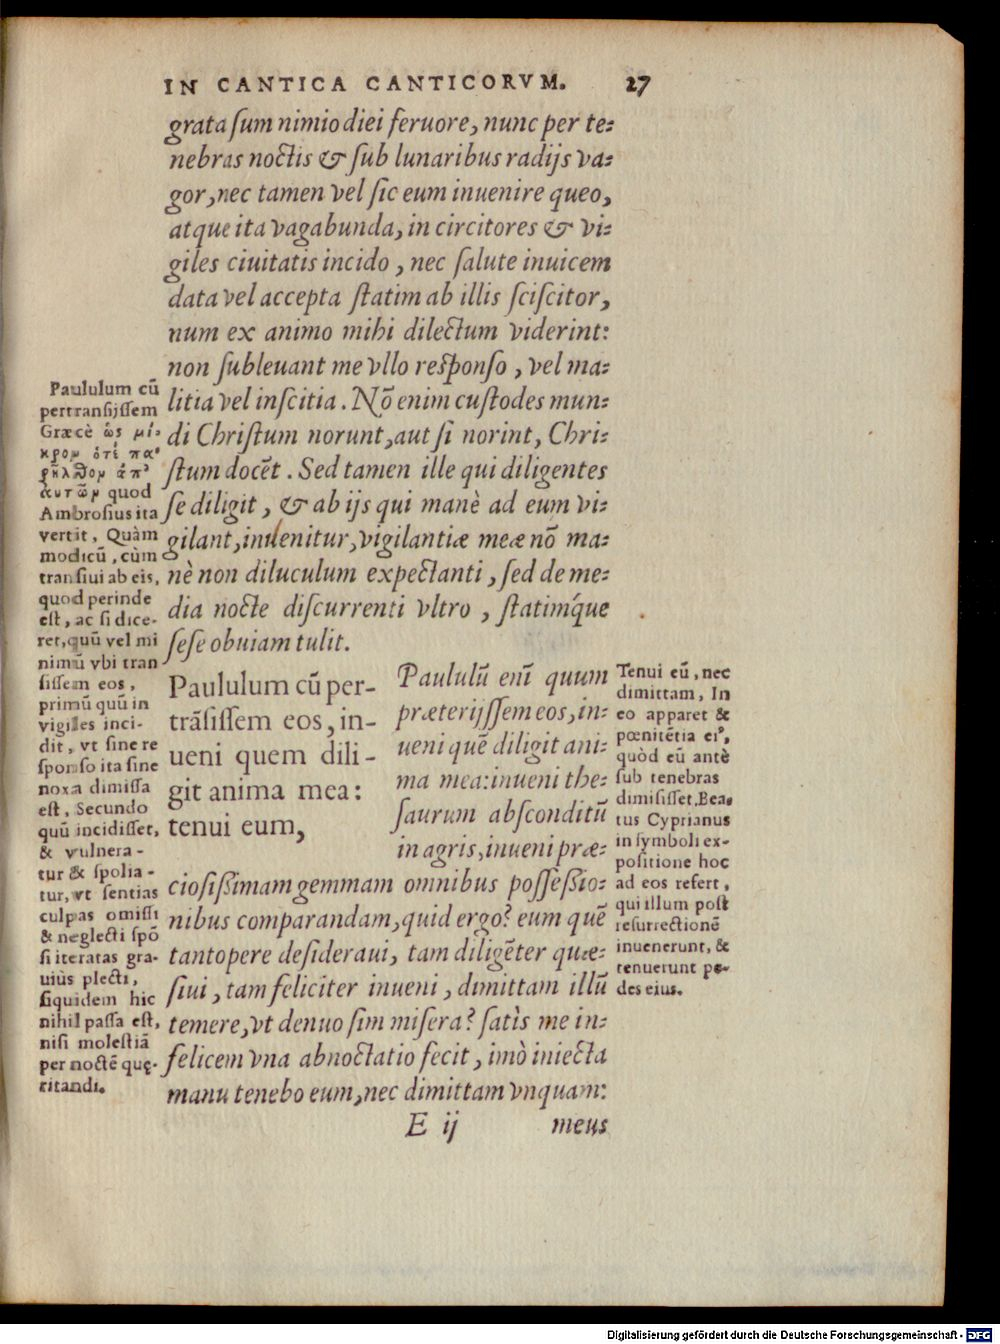 IN CANTICA CANTICORVM. 27
grata ſum nimio diei feruore, nunc per te⸗
nebras noctis & ſub lunaribus radijs va⸗
gor, nec tamen vel ſic eum inuenire queo,
atque ita vagabunda, in circitores & vi⸗
giles ciuitatis incido, nec ſalute inuicem
data vel accepta ſtatim ab illis ſciſcitor,
num ex animo mihi dilectum viderint:
non ſubleuant me vllo reſponſo, vel ma⸗
litia vel inſcitia. Nõ enim cuſtodes mun⸗
di Chriſtum norunt, aut ſi norint, Chri⸗
ſtum docẽt. Sed tamen ille qui diligentes
ſe diligit, & ab ijs qui manè ad eum vi⸗
gilant, inuenitur, vigilantiæ meæ nõ ma⸗
nè non diluculum expectanti, ſed de me⸗
dia nocte diſcurrenti vltro, ſtatimq́ue
ſeſe obuiam tulit.
Paululum cũ
pertranſijſſem
Græcè ὡς μι⸗
κρον ὁτέ πα⸗
ρῆλθον ἀπ᾽
ἀυτῶν quod
Ambroſius ita
vertit, Quàm
modicũ, cùm
tranſiui ab eis,
quod perinde
eſt, ac ſi dice-
ret, quũ vel mi
nimũ vbi tran
ſiſſem eos,
primũ quũ in
vigiles inci-
dit, vt ſine re
ſponſo ita ſine
noxa dimiſſa
eſt, Secundo
quũ incidiſſet,
& vulnera-
tur & ſpolia-
tur, vt ſentias
culpas omiſſi
& neglecti ſpõ
ſi iteratas gra-
uiùs plecti,
ſiquidem hic
nihil paſſa eſt,
niſi moleſtiã
per noctẽ quę-
ritandi.
Paululum cũ per-
trãſiſſem eos, in-
ueni quem dili-
git anima mea:
tenui eum,
Paululũ enĩ quum
præterijſſem eos, in⸗
ueni quẽ diligit ani⸗
ma mea: inueni the⸗
ſaurum abſconditũ
in agris, inueni præ⸗
cioſiſſimam gemmam omnibus poſſeſſio⸗
nibus comparandam, quid ergo? eum quẽ
tantopere deſideraui, tam diligẽter quæ⸗
ſiui, tam feliciter inueni, dimittam illũ
temere, vt denuo ſim miſera? ſatìs me in⸗
felicem vna abnoctatio fecit, imò iniecta
manu tenebo eum, nec dimittam vnquam:
Tenui eũ, nec
dimittam, In
eo apparet &
pœnitẽtia ei⁹,
quòd eũ antè
ſub tenebras
dimiſiſſet, Bea⸗
tus Cyprianus
in ſymboli ex-
poſitione hoc
ad eos refert,
qui illum poſt
reſurrectionẽ
inuenerunt, &
tenuerunt pe-
des eius.
E ij meus
Digitalisierung gefördert durch die Deutsche Forschungsgemeinschaft - DFG